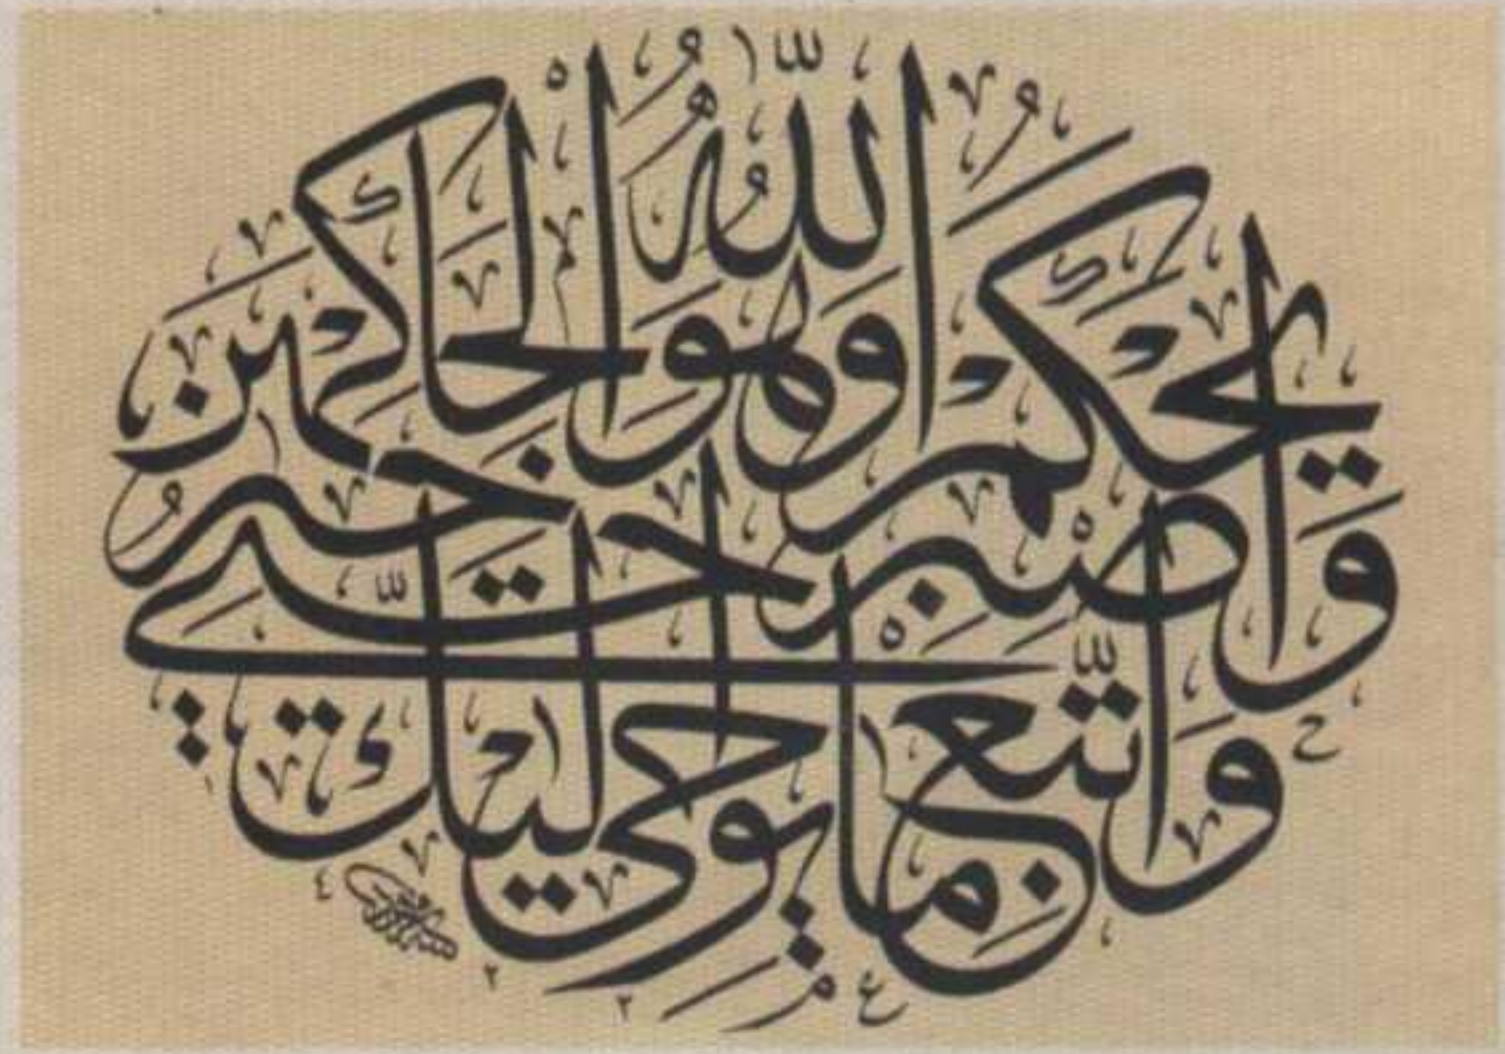 وَاتَّبِعْ مَا يُوحَى إِلَيْكَ
وَاصْبِرْ حَتَّى
يَحْكُمَ اللَّهُ وَهُوَ خَيْرُ الْحَاكِمِينَ